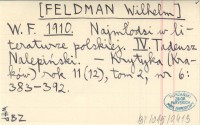 [FELDMAN Wilhelm]
W. F. 1910. Najmłodsi w li-
teraturze polskiej. IV. Tadeusz
Nalepiński. — Krytyka (Kra-
ków) rok 11 (12), tom 2, nr 6:
383-392.
BZ